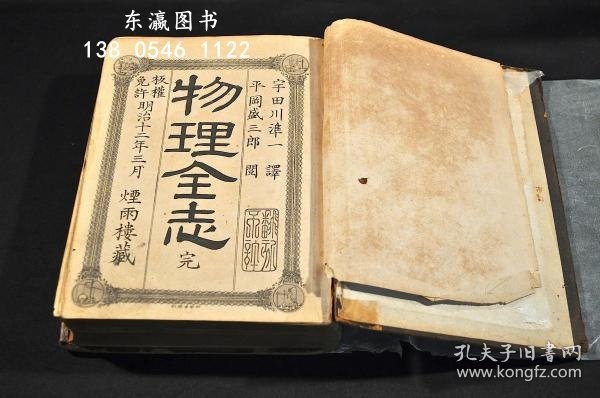 东瀛图书
138 0546 1122
宇田川準一 譯
平岡盛三郎 閲
物理全志 完
板權免許明治十二年三月 煙雨樓藏
孔夫子旧书网
www.kongfz.com